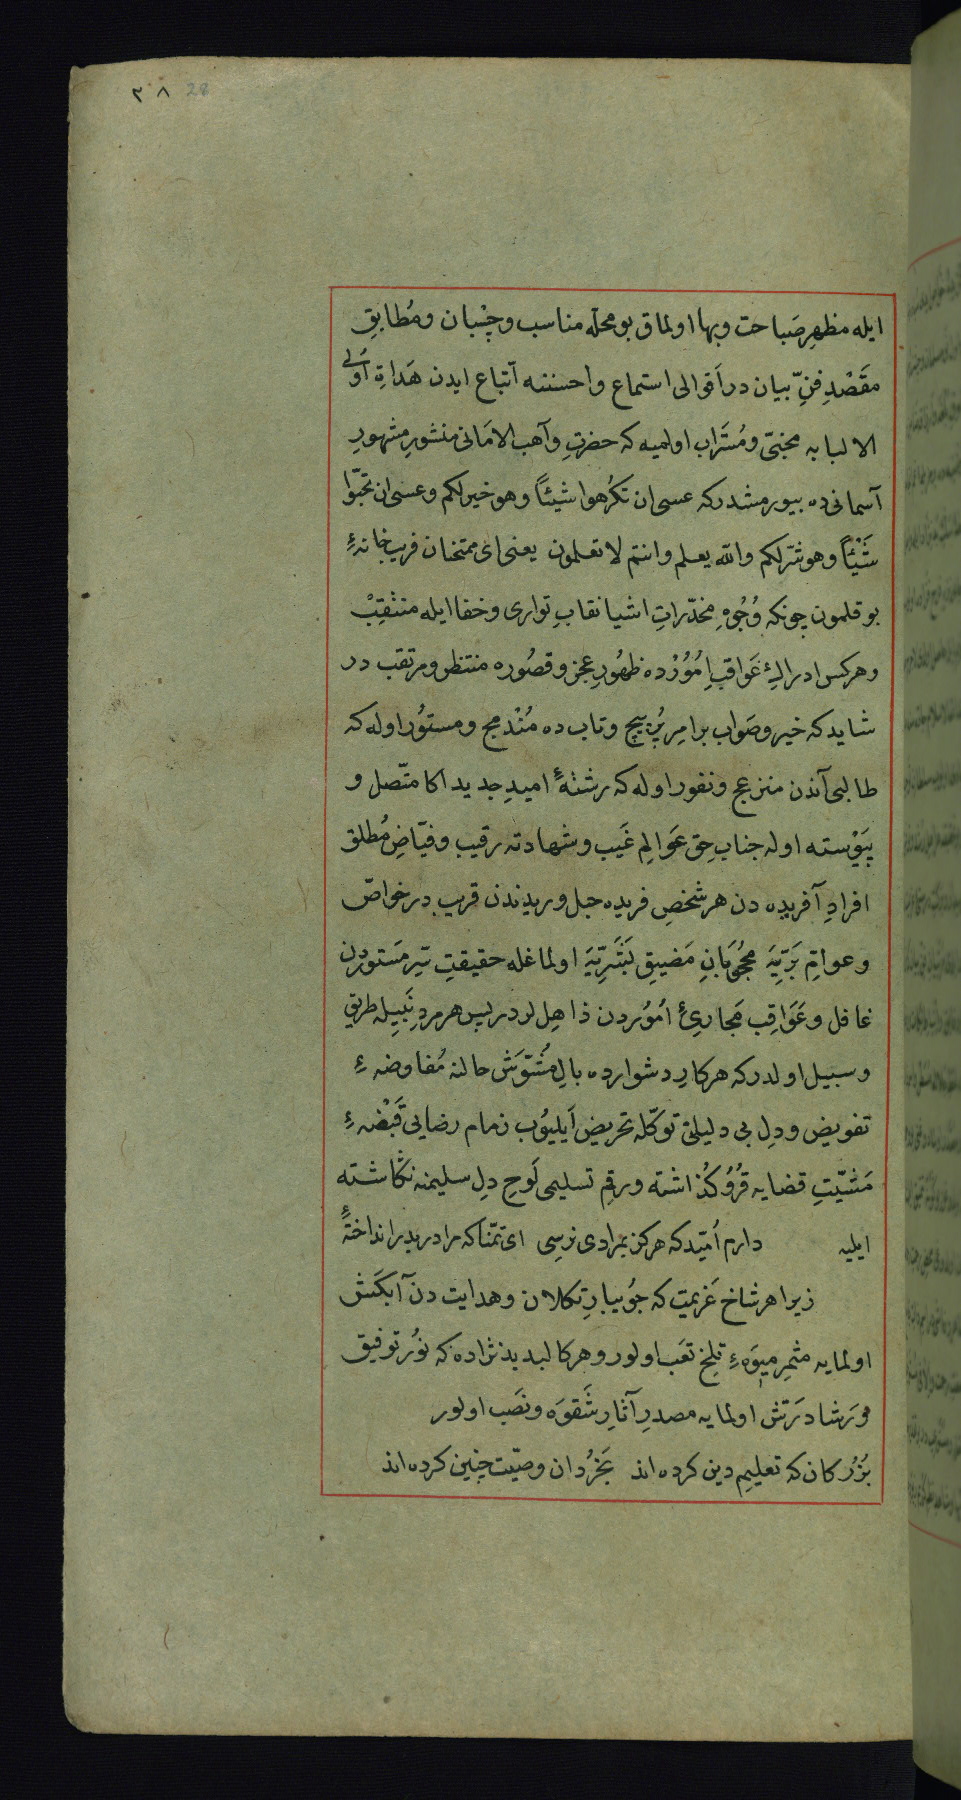 ٢٨ 28
ایله مظهرِ صَباحت وبها اولماق بو محلّه مناسب وچسْپان ومُطابقِ
مقَصْدِ فنِّ بیان در اَقوالی استماع واحسننه اتّباع ایدن هَداةِ اَولی
الالبابه مختبئ ومُسْتَراب اولمیه که حضرتِ وآهب الامَانی منشورِ مشهورِ
آسمانی ده بیورمشدر که عسی ان تکرُهوا شیئاً وهو خیر لکم وعسی ان تحبّوا
شَیْئاً وهو شرّ لکم والله یعلم وانتم لا تعلمون یعنی ای ممتحنان فریب خانهٔ
بوقلمون چونکه وُجُوهِ مخدّراتِ اشیا نقابِ تواری وخفا ایله متنقّبْ
وهر کس ادراكِ عَواقبِ اُمُوْرْده ظهُورِ عجز وقصُوره منتظر ومرتقب در
شاید که خیر وصَواب بر امرِ پُر پیچ وتاب ده مُنْدمج ومستوُر اوله که
طالبی آندن منزعج ونفور اوله که رشتهٔ امیدِ جدید اکا متّصل و
پَیوْسته اوله جنابِ حق عَوَالِم غَیب وشهادته رقیب وفیّاضِ مُطلق
افرادِ آفریده دن هر شخصِ فریده حبل وریدندن قریب در خواصّ
وعوامِّ بَرّیَه محجُوبانِ مَضیقِ بَشَرّیَه اولماغله حقیقتِ سِرِّ مَستوردن
غافل وعَوَاقِب مَجارئِ اُموُردن ذاهِل لردر پس هر مردِ نَبیله طریق
وسبیل اولدر که هر کارِ دشوارده بالِ مُشَّوَش حالنه مُفاوضهٔ
تفویض ودِلِ بی دلیلنی توکّله تحریض اَیلیوُب زمام رضایی قَبْضهٔ
مَشیّتِ قضایه فرُوُ کُذاشته ورقم تسلیمی لَوحِ دِلِ سلیمنه نکٰاشته
ایلیه دارم اُمّید که هرکز بمرادی نرسی ای تمّنا که مرا دربدر انداختهٔ
زیرا هر شاخ عَزیمت که جُویبارِ تکلان وهدایت دن آبکَش
اولمایه مثمرِ میوهٔ تلخِ تعَب اولور وهر کالبد بذنژاده که نوُر توفیق
ورَشادرَتش اولمایه مصدرِ آثارِ شَقوَه ونصَب اولور
بُزرکان که تعلیمِ دین کرده اند بَخرُدان وصیّت چنین کرده اند